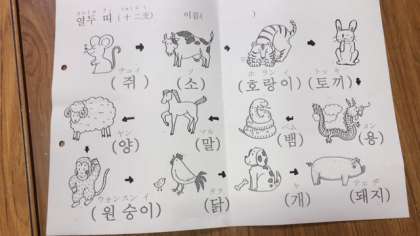 열두 띠 (十二支) 이름( )
(쥐) (소) (호랑이) (토끼)
(양) (말) (뱀) (용)
ウォンスン イ
(원숭이) (닭) (개) (돼지)